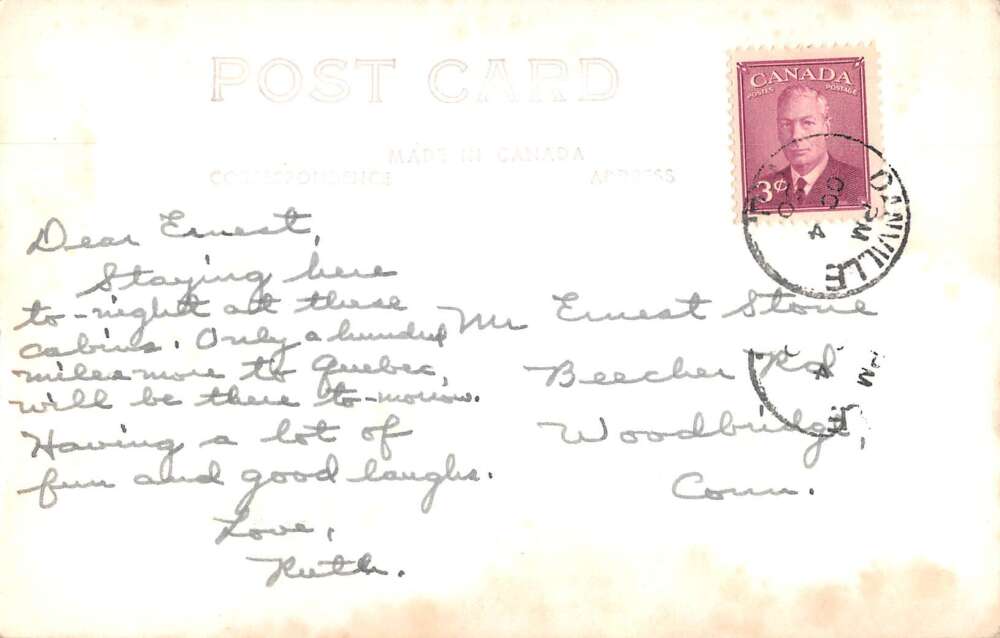 POST CARD
MADE IN CANADA
CORRESPONDENCE
ADDRESS
CANADA
POSTES POSTAGE
3¢
DANVILLE
PM
Dear Ernest,
Staying here
to-night at these
cabins. Only a hundred
miles more to Quebec,
will be there to-morrow.
Having a lot of
fun and good laughs.
Love,
Ruth.
Mr Ernest Stone
Beecher Rd
Woodbridge,
Conn.
PM
E